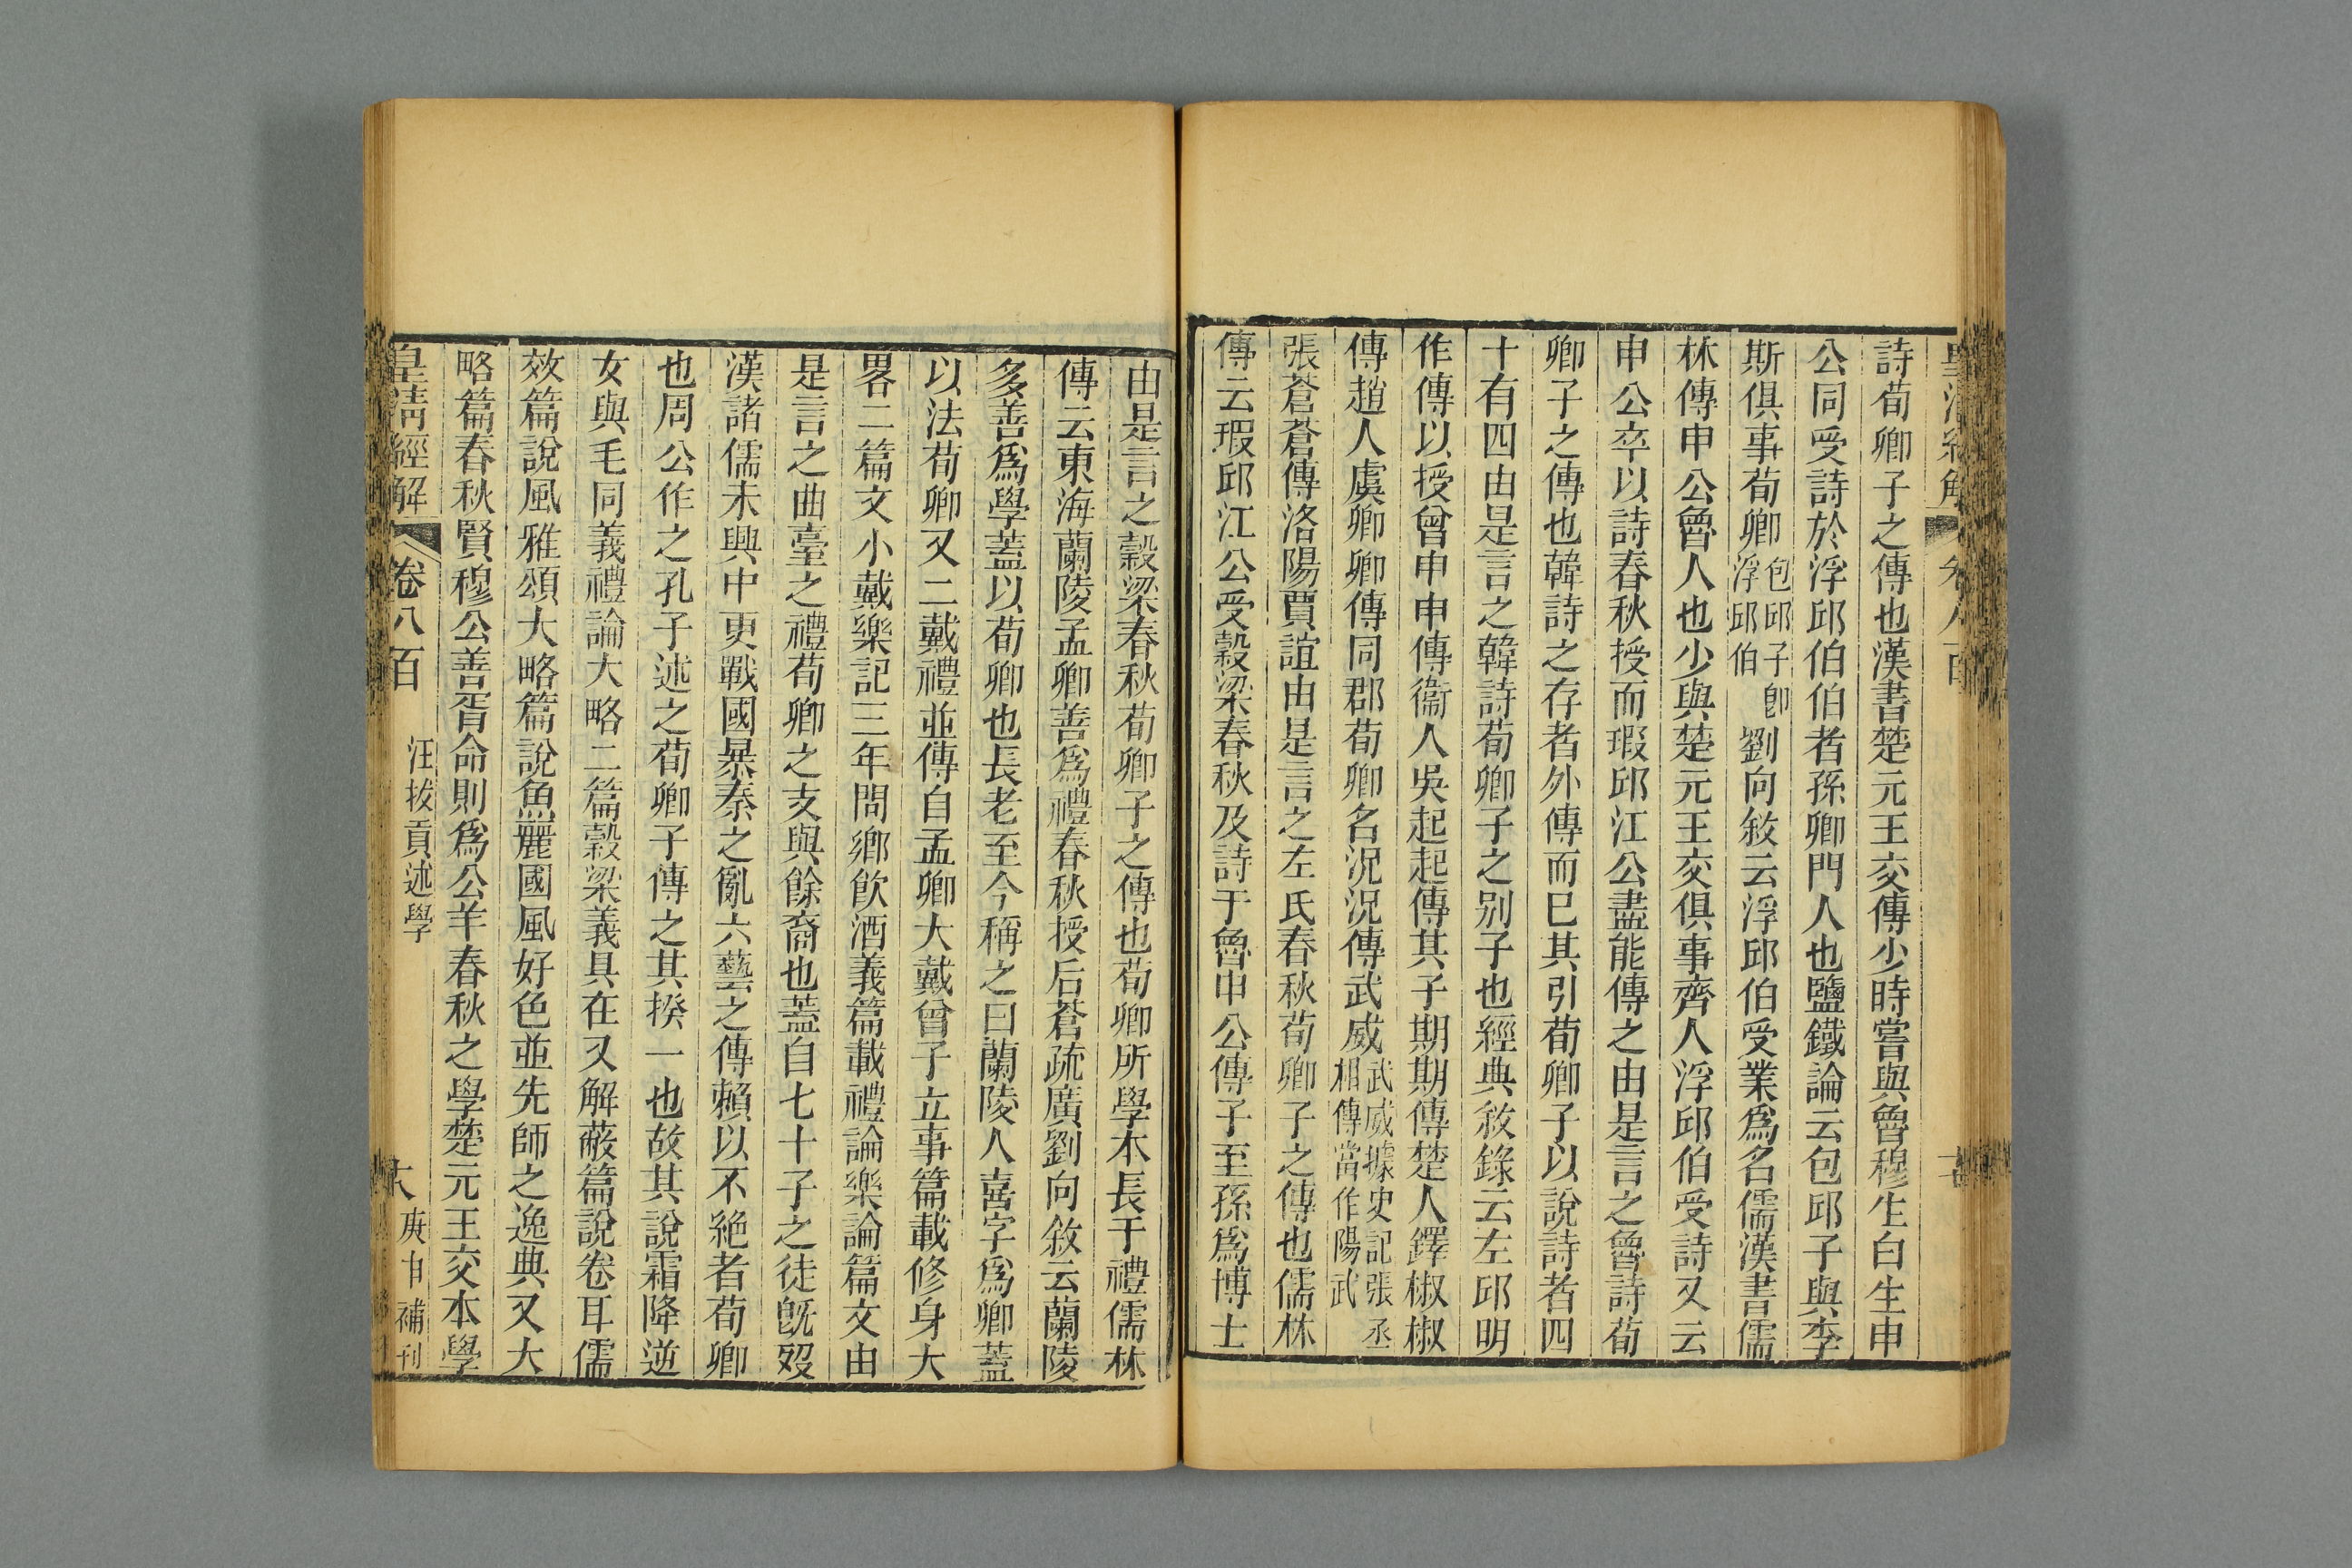 詩荀卿子之傳也漢書楚元王交傳少時嘗與魯穆生白生申
公同受詩於浮邱伯伯者孫卿門人也鹽鐵論云包邱子與李
斯俱事荀卿包邱子卽浮邱伯劉向敘云浮邱伯受業爲名儒漢書儒
林傳申公魯人也少與楚元王交俱事齊人浮邱伯受詩又云
申公卒以詩春秋授而瑕邱江公盡能傳之由是言之魯詩荀
卿子之傳也韓詩之存者外傳而已其引荀卿子以說詩者四
十有四由是言之韓詩荀卿子之別子也經典敘錄云左邱明
作傳以授曾申申傳衞人吳起起傳其子期期傳楚人鐸椒椒
傳趙人虞卿卿傳同郡荀卿名況況傳武威武威據史記張丞相傳當作陽武
張蒼蒼傳洛陽賈誼由是言之左氏春秋荀卿子之傳也儒林
傳云瑕邱江公受穀梁春秋及詩于魯申公傳子至孫爲博士
由是言之穀梁春秋荀卿子之傳也荀卿所學本長于禮儒林
傳云東海蘭陵孟卿善爲禮春秋授后蒼疏廣劉向敘云蘭陵
多善爲學蓋以荀卿也長老至今稱之曰蘭陵人喜字爲卿蓋
以法荀卿又二戴禮並傳自孟卿大戴曾子立事篇載修身大
畧二篇文小戴樂記三年問鄉飲酒義篇載禮論樂論篇文由
是言之曲臺之禮荀卿之支與餘裔也蓋自七十子之徒旣歿
漢諸儒未興中更戰國暴秦之亂六藝之傳賴以不絕者荀卿
也周公作之孔子述之荀卿子傳之其揆一也故其說霜降逆
女與毛同義禮論大略二篇穀梁義具在又解蔽篇說卷耳儒
效篇說風雅頌大略篇說魚麗國風好色並先師之逸典又大
略篇春秋賢穆公善胥命則爲公羊春秋之學楚元王交本學
皇清經解 卷八百 汪拔貢述學 庚申補刊